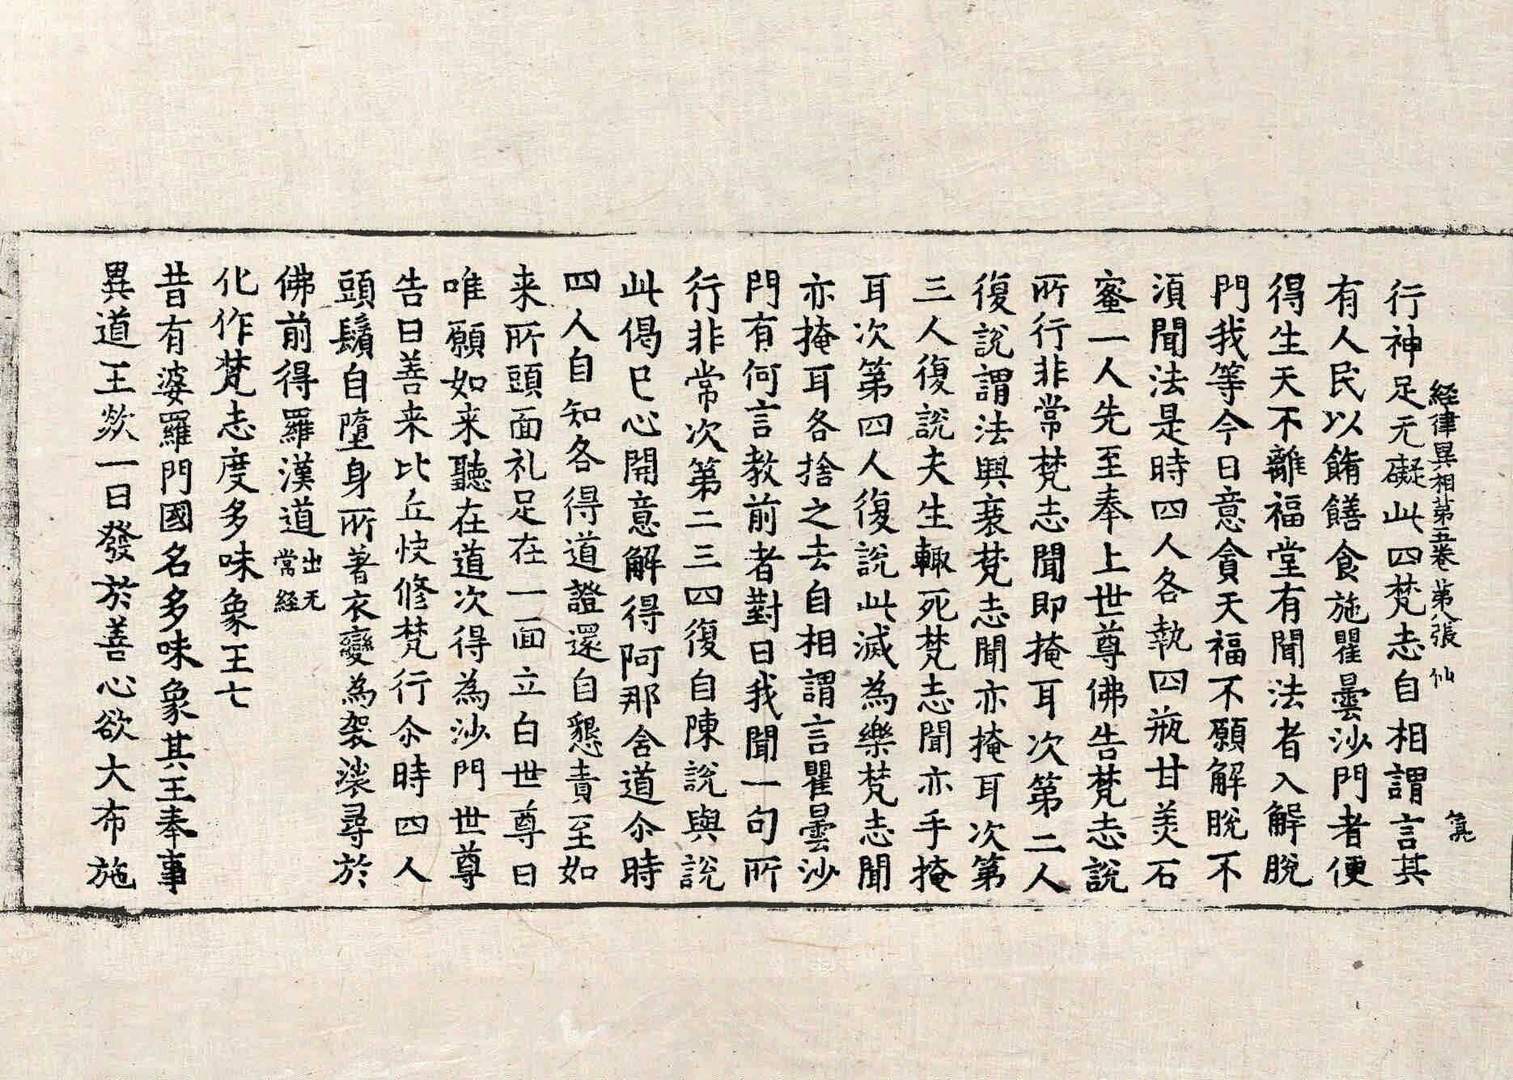 経律異相第五卷 第八張 仙
行神足无礙此四梵志自相謂言其
有人民以餚饍食施瞿曇沙門者便
得生天不離福堂有聞法者入解脫
門我等今日意貪天福不願解脫不
湏聞法是時四人各執四瓶甘美石
蜜一人先至奉上世尊佛告梵志說
所行非常梵志聞即掩耳次第二人
復說謂法興衰梵志聞亦掩耳次第
三人復說夫生輙死梵志聞亦手掩
耳次第四人復說此滅為樂梵志聞
亦掩耳各捨之去自相謂言瞿曇沙
門有何言教前者對曰我聞一句所
行非常次第二三四復自陳說與說
此偈已心開意解得阿那含道尒時
四人自知各得道證還自懇責至如
来所頭面礼足在一面立白世尊曰
唯願如来聽在道次得為沙門世尊
告曰善来比丘快修梵行尒時四人
頭鬚自墮身所著衣變為袈裟尋於
佛前得羅漢道 出无常経
化作梵志度多味象王七
昔有婆羅門國名多味象其王奉事
異道王欻一日發於善心欲大布施